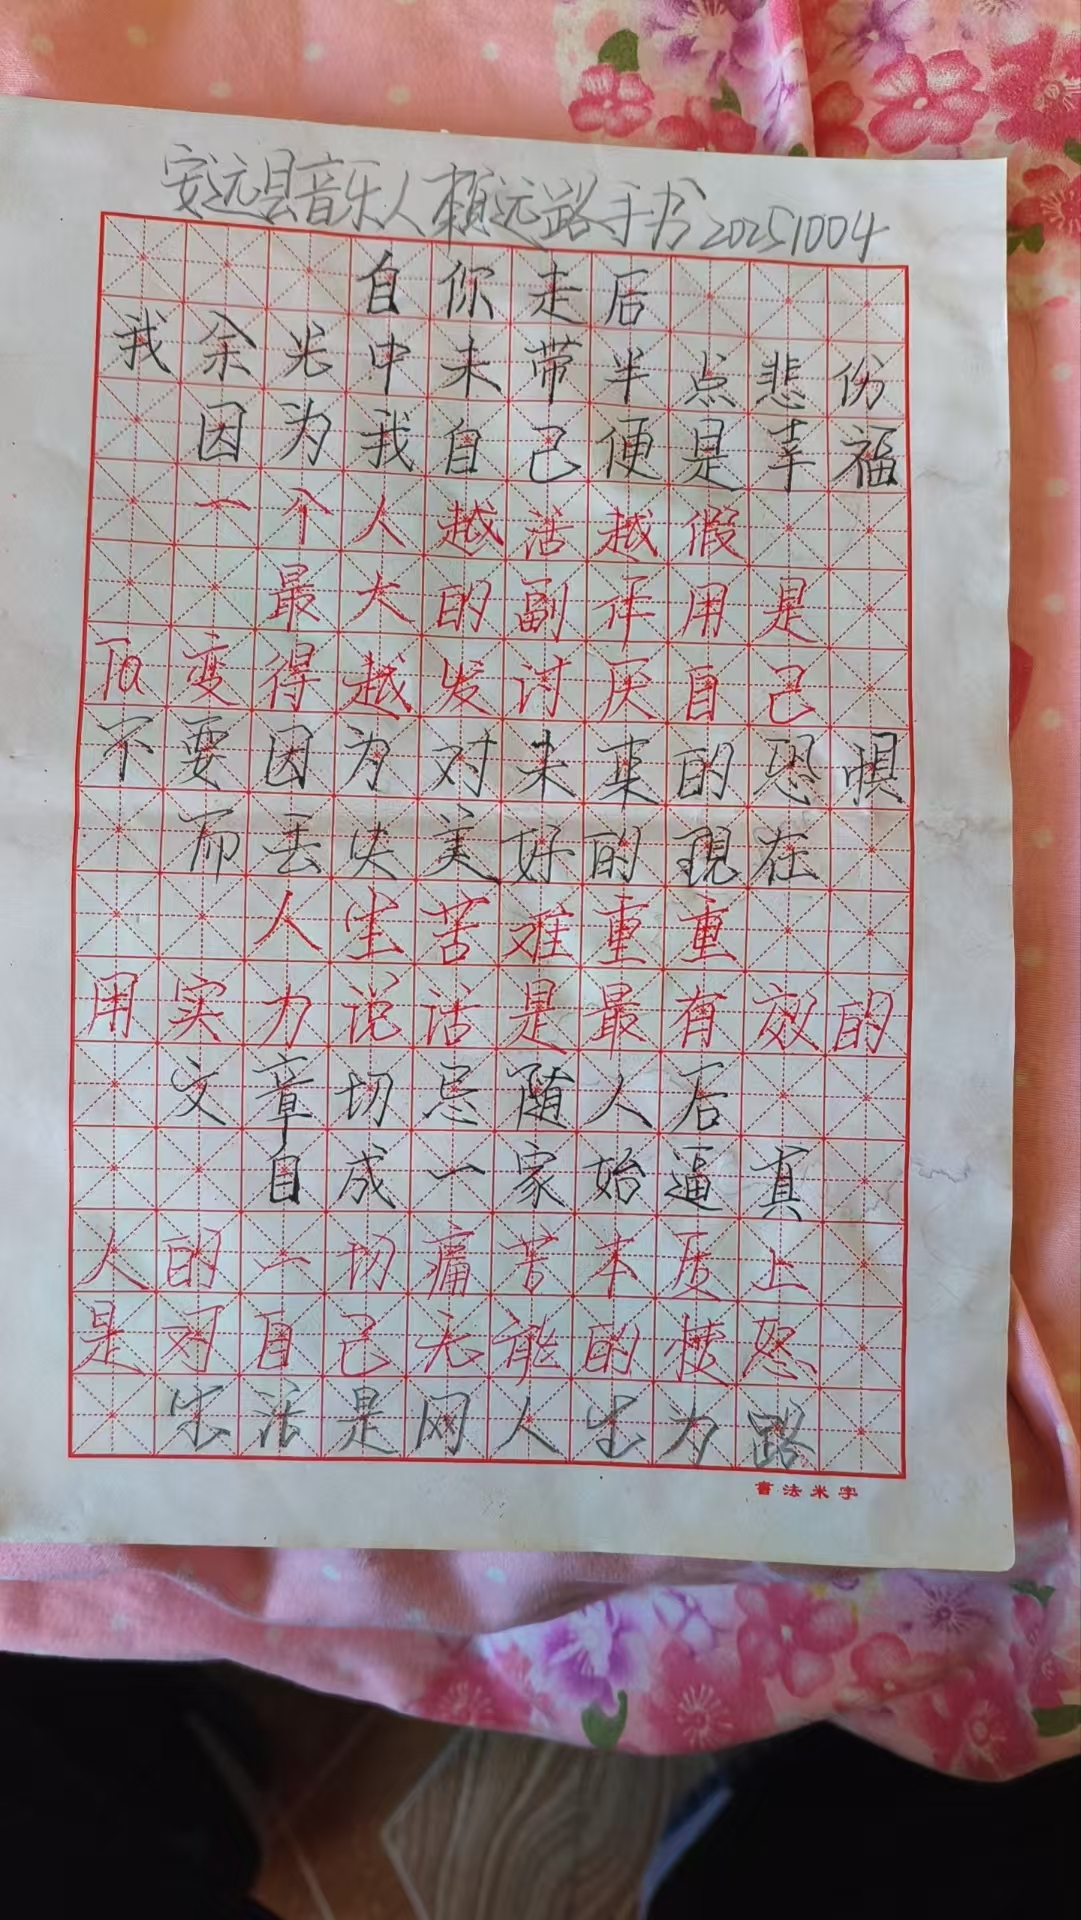 安远县音乐人赖远路手书20251004
自你走后
我余光中未带半点悲伤
因为我自己便是幸福
一个人越活越假
最大的副作用是
变得越发讨厌自己
不要因为对未来的恐惧
而丢失美好的现在
人生苦难重重
用实力说话是最有效的
文章切忌随人后
自成一家始逼真
人的一切痛苦本质上
是对自己无能的愤怒
生活是网人生为路
書法米字